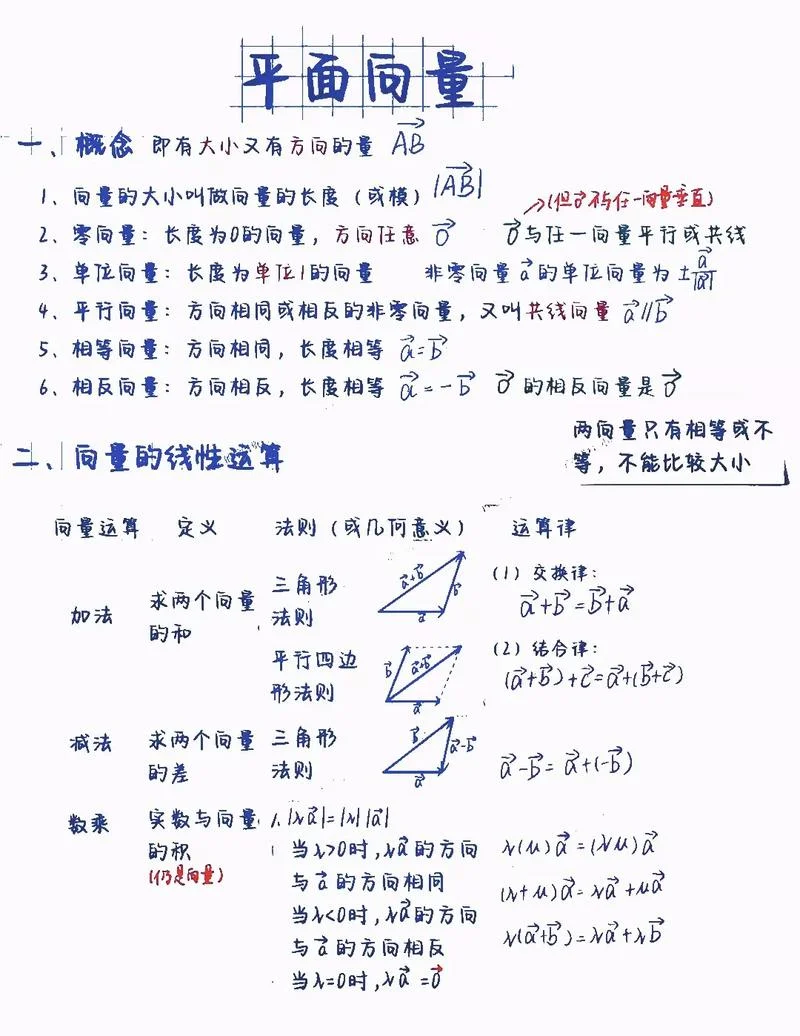 平面向量
一、概念 即有大小又有方向的量 \(\overrightarrow{AB}\)
1、向量的大小叫做向量的长度（或模）\(|\overrightarrow{AB}|\)
(但\(\vec{0}\)不与任一向量垂直)
2、零向量：长度为0的向量，方向任意 \(\vec{0}\) \(\vec{0}\)与任一向量平行或共线
3、单位向量：长度为单位1的向量 非零向量\(\vec{a}\)的单位向量为\(\pm\frac{\vec{a}}{|\vec{a}|}\)
4、平行向量：方向相同或相反的非零向量，又叫共线向量 \(\vec{a}//\vec{b}\)
5、相等向量：方向相同，长度相等 \(\vec{a}=\vec{b}\)
6、相反向量：方向相反，长度相等 \(\vec{a}=-\vec{b}\) \(\vec{0}\)的相反向量是\(\vec{0}\)
两向量只有相等或不
等，不能比较大小
二、向量的线性运算
向量运算 定义 法则（或几何意义） 运算律
加法
求两个向量
的和
三角形
法则
\(\vec{a}+\vec{b}\)
\(\vec{b}\)
\(\vec{a}\)
平行四边
形法则
\(\vec{b}\)
\(\vec{a}+\vec{b}\)
\(\vec{a}\)
(1) 交换律：
\(\vec{a}+\vec{b}=\vec{b}+\vec{a}\)
(2) 结合律：
\((\vec{a}+\vec{b})+\vec{c}=\vec{a}+(\vec{b}+\vec{c})\)
减法
求两个向量
的差
三角形
法则
\(\vec{b}\)
\(\vec{a}-\vec{b}\)
\(\vec{a}\)
\(\vec{a}-\vec{b}=\vec{a}+(-\vec{b})\)
数乘
实数与向量
的积
(仍是向量)
1. \(|λ\vec{a}|=|λ||\vec{a}|\)
当λ>0时，λ\(\vec{a}\)的方向
与\(\vec{a}\)的方向相同
当λ<0时，λ\(\vec{a}\)的方向
与\(\vec{a}\)的方向相反
当λ=0时，λ\(\vec{a}\)=\(\vec{0}\)
\(λ(μ)\vec{a}=(λμ)\vec{a}\)
\((λ+μ)\vec{a}=λ\vec{a}+μ\vec{a}\)
\(λ(\vec{a}+\vec{b})=λ\vec{a}+λ\vec{b}\)